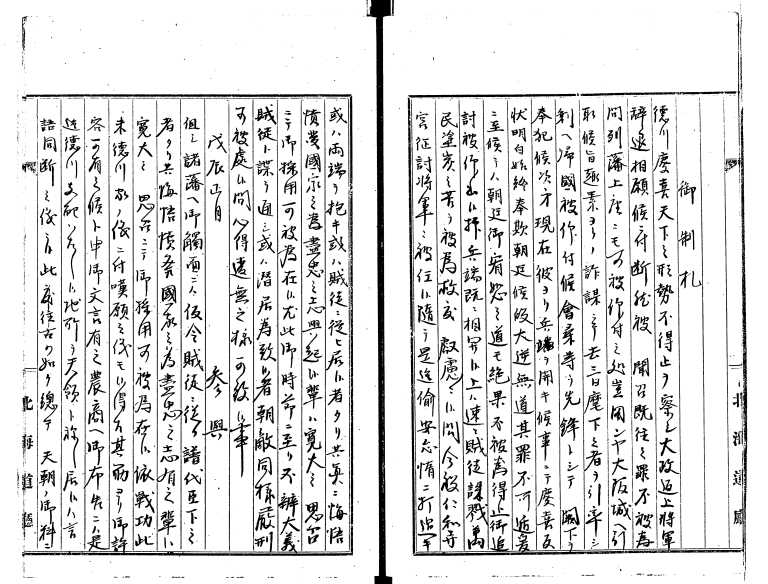 御制札
徳川慶喜天下之形勢不得止ヲ察シ大政返上将軍
辞退相願候ニ付断然被 聞召既往之罪不被為
問列藩上座ニモ可被仰付之処豈図ンヤ大阪城ヘ引
取候旨趣素ヨリノ詐謀ニテ去三日麾下之者ヲ引率シ
剰ヘ帰国被仰付候會桑等ヲ先鋒トシテ 闕下ヲ
奉犯候次才現在彼ヨリ兵端ヲ開キ候事ニテ慶喜反
状明白始終奉欺朝廷候段大逆無道其罪不可遁爰
ニ至候テハ朝廷御宥恕之道モ絶果不被為得止御追
討被仰出候抑兵端既ニ相開候上ハ速ニ賊徒誅戮萬
民塗炭之苦ヲ被為救度 叡慮ニ候間今般仁和寺
宮征討将軍ニ被任候随テ是迄偸安怠惰ニ打過或
或ハ両端ヲ抱キ或ハ賊徒ニ従ヒ居候者タリ共真ニ悔悟
憤発國家之為盡忠之志興起候輩ハ寛大之 思召
ニテ御採用可被為在候尤此御時節ニ至リ不辨大義
賊徒ト謀ヲ通シ或ハ潜居為致候者朝敵同様厳刑
可被處候間心得違無之様可致候事
戊辰正月 参與
但シ諸藩ヘ御觸面ニハ仮令賊徒ニ従ヒ譜代臣下之
者タリ共悔悟憤発國家之為盡忠之志有之輩ハ
寛大之 思召ニテ御採用可被為在候依戦功此
末徳川家ノ儀ニ付嘆願之儀モ候得ハ其筋ヨリ御許
容可有之候ト申御文言有之農商ヘ御布告ニハ是
迄徳川支配イタシ候地所ヲ天領ト称シ居候ハ言
語同断之儀ニ候此度往古ノ如ク総テ 天朝ノ御料ニ
北海道廳
北海道廳